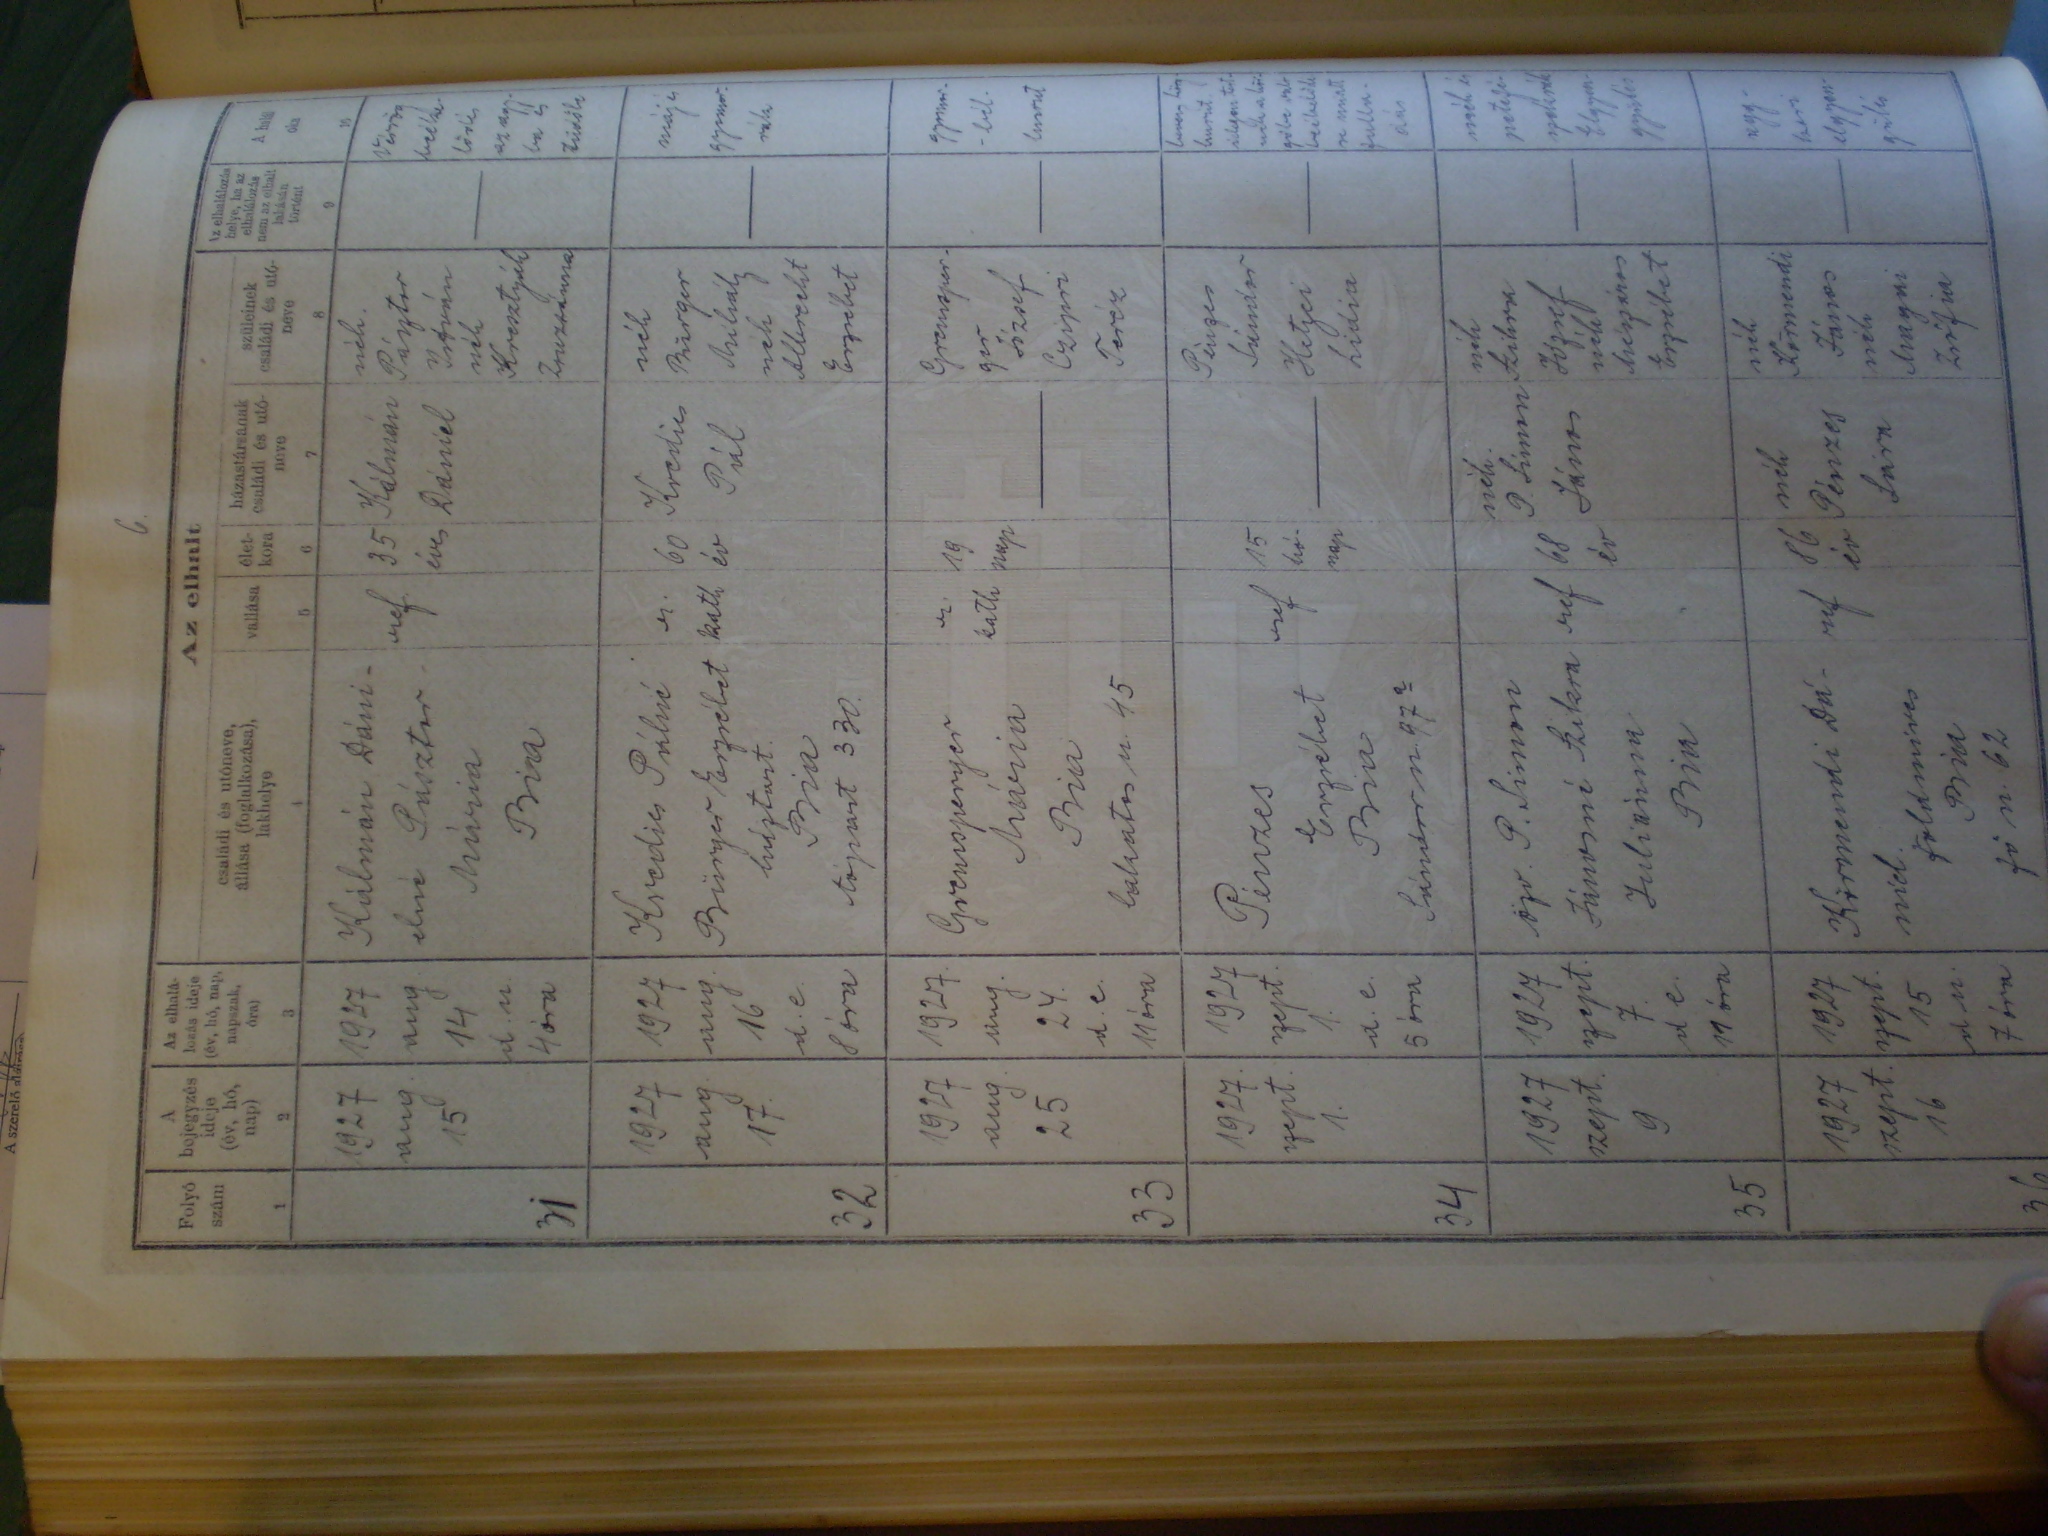 6.
Az elhalt
Folyó
szám
A
bejegyzés
ideje
(év, hó,
nap)
Az elhalá-
lozás ideje
(év, hó, nap,
napszak,
óra)
családi és utóneve,
állása (foglalkozása),
lakhelye
vallása
élet-
kora
házastársának
családi és utó-
neve
szüleinek
családi és utó-
neve
Az elhalálozás
helye, ha az
elhalálozás
nem az elhalt
lakásán
történt
A halál
oka
1
2
3
4
5
6
7
8
9
10
31
1927
aug.
15
1927
aug.
14
d. u.
4 óra
Kálmán Dáni-
elné Pásztor
Mária
Bia
ref.
35
éves
Kálmán
Dániel
néh.
Pásztor
István
néh
Keresztyén
Zsuzsánna
32
1927
aug.
17.
1927
aug.
16
d. e.
8 óra
Kredics Pálné
Bürger Erzsébet
háztart.
Bia
Tópart 330.
r.
kath
60
év
Kredics
Pál
néh
Bürger
Mihály
néh
Albrecht
Erzsébet
májés
gyomor-
rák
33
1927
aug.
25
1927.
aug.
24.
d. e.
11 óra
Grenusperger
Mária
Bia
lakatos u. 45
r.
kath
19
nap
Grenusper-
ger
József
Czipri
Teréz
gyomor-
-bél-
hurut
34
1927.
szept.
1.
1927
szept.
1.
d. e.
5 óra
Pénzes
Erzsébet
Bia
Sándor u. 97
ref
15
hó-
nap
Pénzes
Sándor
Hetyei
Lidia
35
1927
szept.
9
1927
szept.
7.
d. e.
11 óra
özv. P. Simon
Jánosné Szikra
Juliánna
Bia
ref
68
év
néh.
P. Simon
János
néh
Szikra
József
néh
Mészáros
Erzsébet
36
1927
szept.
16
1927
szept.
15
d. u.
7 óra
Körmendi Dá-
niel
földmíves
Bia
fő u. 62
ref
86
év
néh
Pénzes
Sára
néh
Körmendi
János
néh
Magyai
Zsófia
agg-
kori
elgyen-
gülés
A szerelő aláírása